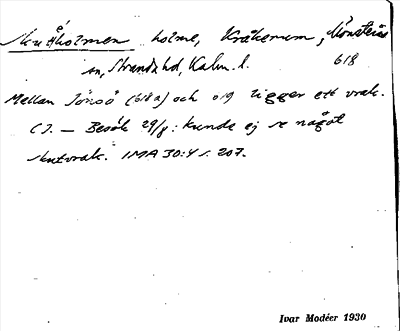 holme, Kråkerum, Mönsterås
sn, Stranda hd, Kalm. l. 618
Mellan Jönsö (618a) och 019 ligger ett vrak.
(J. — Besök 29/8: kunde ej se något
skutvrak. IMA 30:4 s. 207.
Ivar Modéer 1930